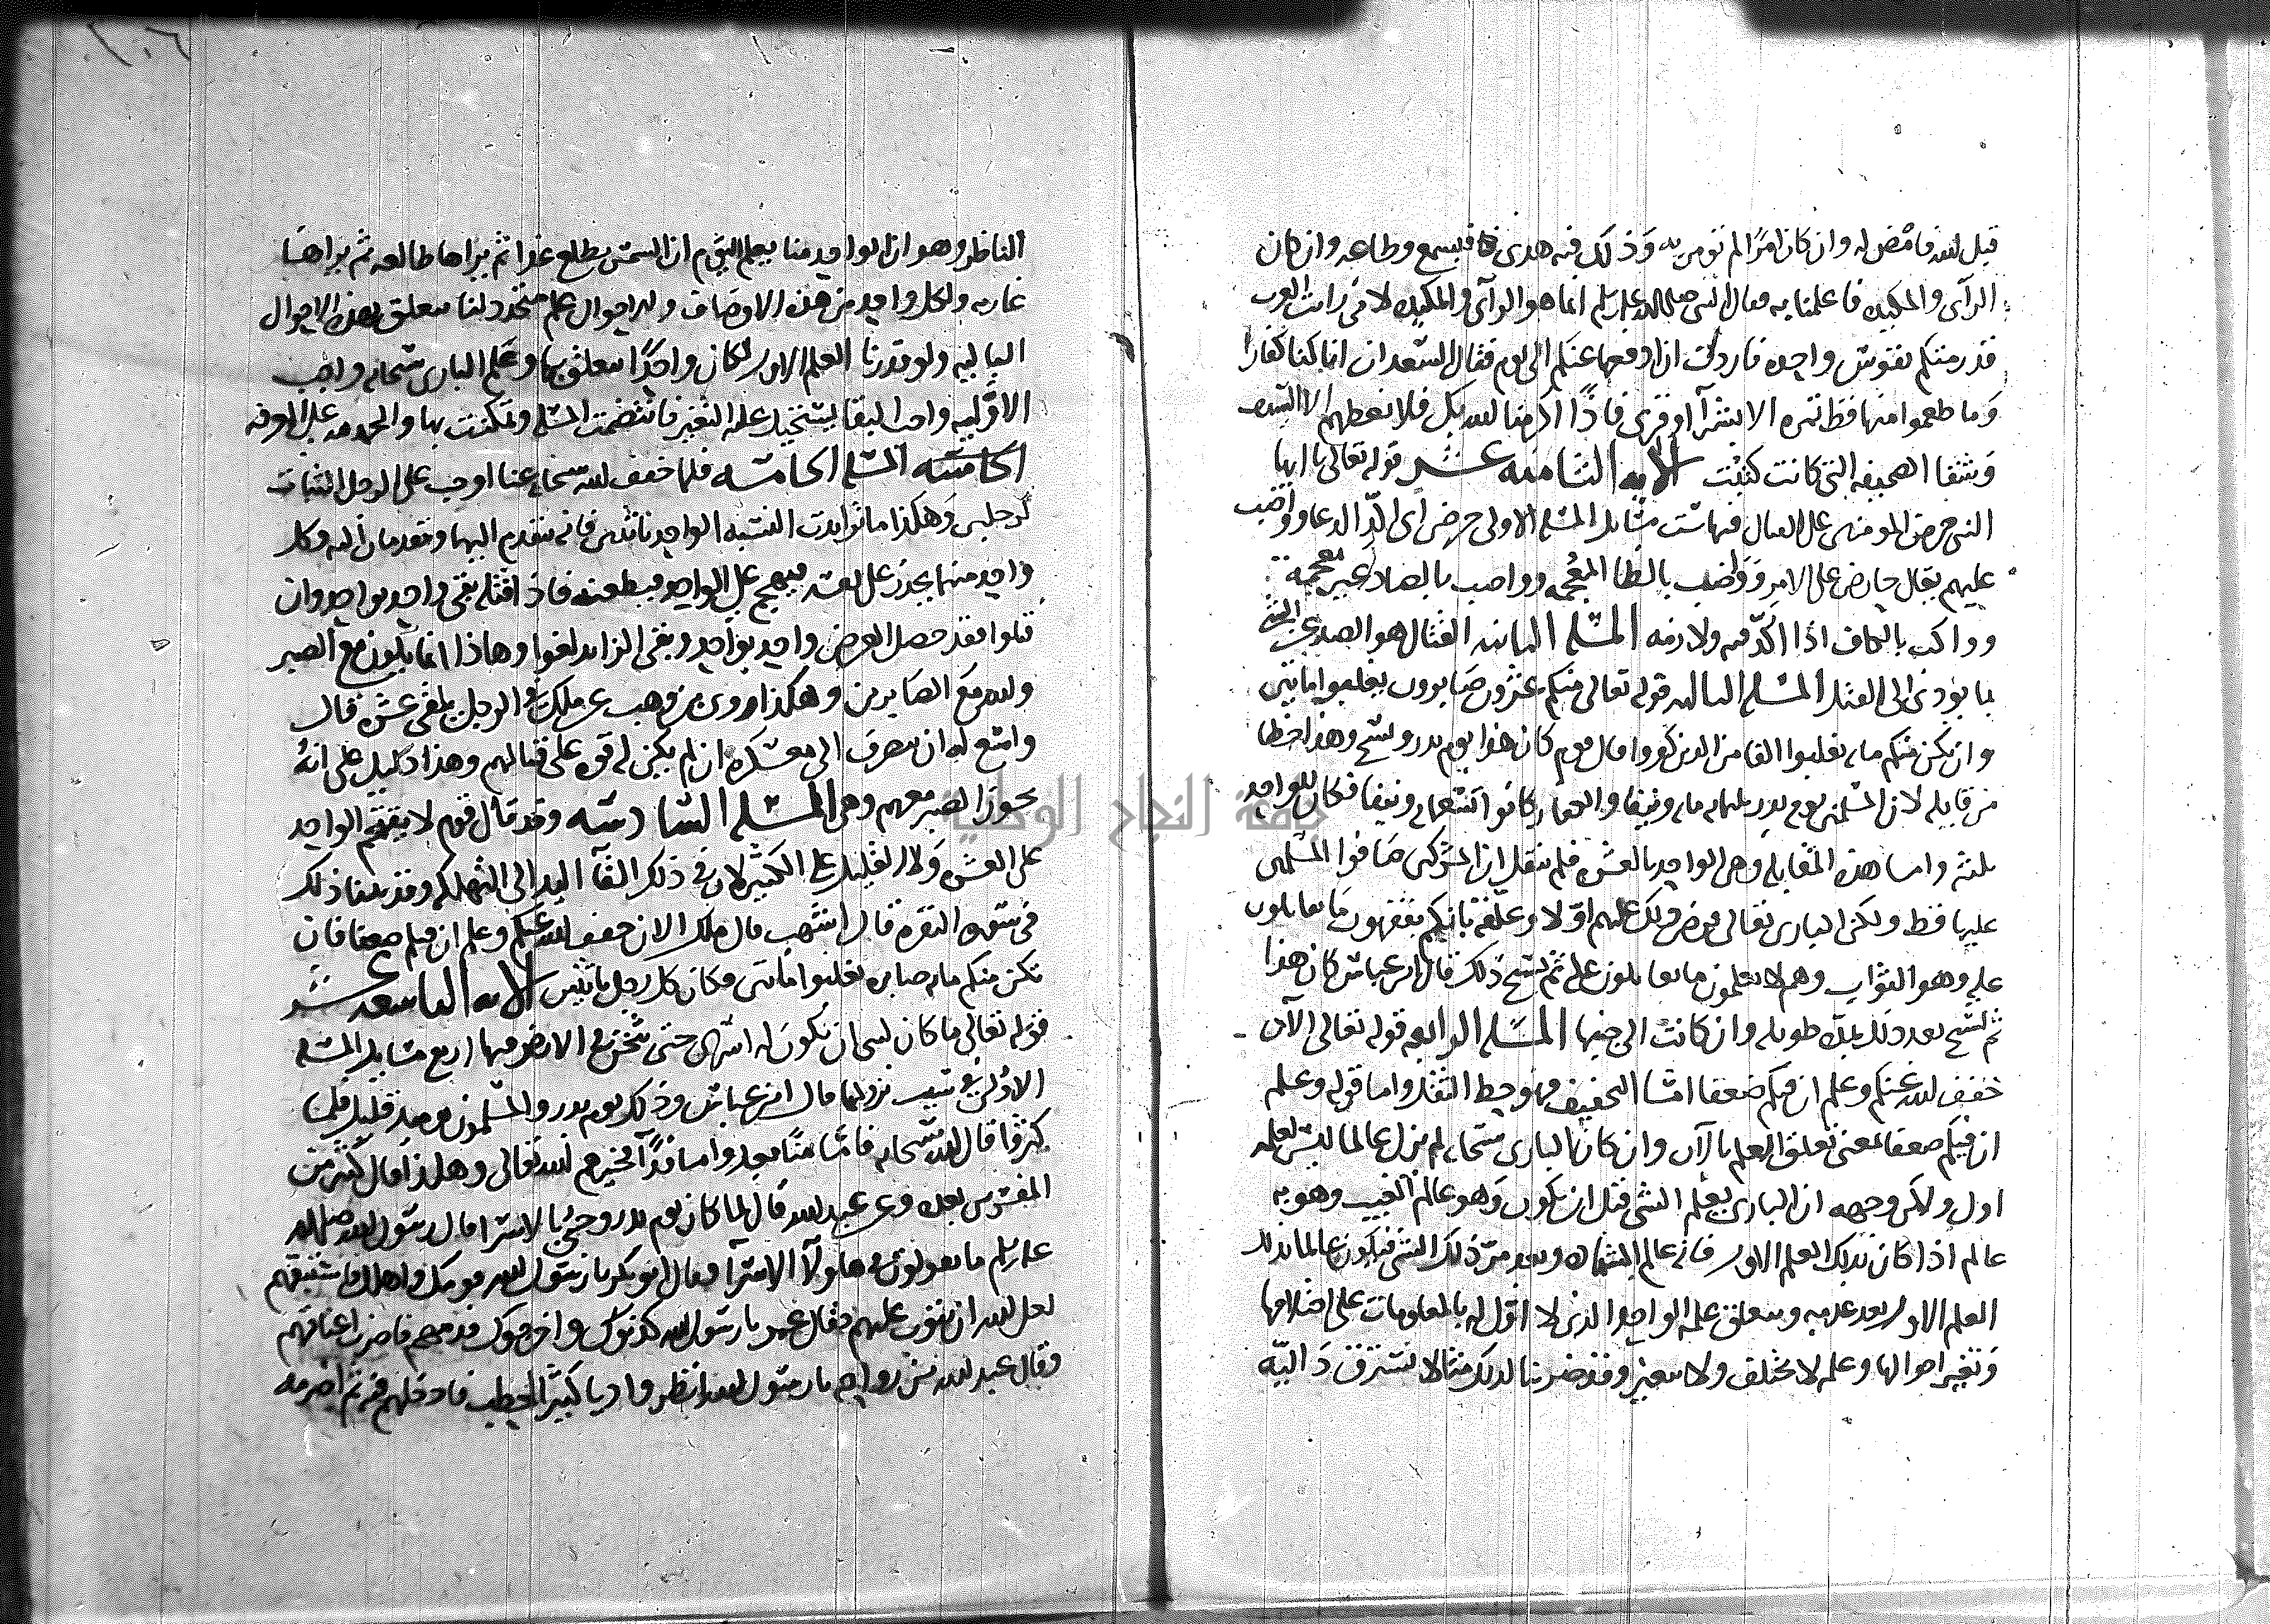 قبل الله فامض له وان كان امرا لم نومر به وذلك فيه هدى فاقـ فسمع وطاعه وان كان
الرأى والمكيده فاعلمنا به فقال النبى صلى الله عليه وسلم انما هو الرأى والمكيده لانى رايت العرب
قد رمتكم بقوس واحده فاردت ان ادفعها عنكم الى يوم فقال السعدان انا كنا كفارا
وما طعموا منها قط تمره الا بشرآ او قرى فاذا اكرمنا الله بك فلا نعطهم الا السيف
وشقا الصحيفه التى كانت كتبت الايه الثامنه عشر قوله تعالى يا ايها
النبى حرض المومنين على القتال فيها ست مسايل المسله الاولى حرض اى اكّد الدعا وواضب
عليهم يقال حارض على الامر وواضب بالظا المعجمه وواصب بالصاد غير معجمة
وواكب بالكاف اذا اكّد فيه ولازمه المسله الثانيه القتال هو الصد عن الشى
بما يودى الى القتل المسله الثالثه قوله تعالى منكم عشرون صابرون يغلبوا مايتين
وان يكن منكم مايه يغلبوا الفا من الذين كفروا قال قوم كان هذا يوم بدر ونسخ وهذا خطا
من قايله لان المسلمين يوم بدر ثلثمايه ونيفا والكفار كانوا تسعمايه ونيفا فكان للواحد
ثلثه واما هذه المقابله وهى الواحد بالعشره فلم ينقل ان المشركين صافوا المسلمين
عليها قط ولكن البارى تعالى فرض ذلك عليهم اولا وعلقه بانكم تفقهون ما تقاتلون
عليه وهو الثواب وهم لا يعلمون ما يقاتلون عليه ثم نسخ ذلك قال ابن عباس كان هذا
ثم نسخ بعد ذلك بمده طويله وان كانت الى جنبها المسله الرابعه قوله تعالى الآن
خفف الله عنكم وعلم ان فيكم ضعفا امّا التخفيف فهو حط الثقل واما قوله وعلم
ان فيكم ضعفا فمعنى تعلق العلم بالآن وان كان البارى سبحانه لم يزل عالما ليس لعلمه
اول ولكن وجهه ان البارى يعلم الشى قبل ان يكون وهو عالم الغيب وهو به
عالم اذا كان بذلك العلم الاول فانه عالم الشهاده وبعد مرّ ذلك الشى فيكون عالما بذلك
العلم الاول بعد عدمه ويتعلق علمه الواحد الذى لا اول له بالمعلومات على اختلافها
وتغير احوالها وعلمه لا يختلف ولا يتغير وقد ضربنا لذلك مثالا نستروق دَ اليّه
١٠٦
الناظر وهو ان الواحد منا يعلم اليوم ان الشمس تطلع غدا ثم يراها طالعه ثم يراها
غاربه ولكل واحد من هذه الاوصاف والاحوال علم متجدد لنا يتعلق بهذه الاحوال
الباليه ولو قدرنا العلم الاول لكان واحدًا يتعلق بها وعلم البارى سبحانه واجب
الاوّليه واجب البقا يستحيل عليه التغير فانتضمت المسله وتمكنت بها والحمد لله على المعرفه
الخامسه المسله الخامسه فلما خفف الله سبحانه عنا اوجب على الرجل الثبات
لرجلين وهكذا ما تزايدت النسبه الواحد باثنين فانه يتقدم اليهما وتقدمان اليه وكل
واحد منهما يحذر على نفسه فيهجم على الواحد فيطعنه فاذا قتله بقى واحد بواحد وان
قتلوا فقد حصل الغرض واحد بواحد وبقى الزايد لغوا وهاذا انما يكون مع الصبر
والله مع الصابرين وهكذا روى ابن وهب عن ملك فى الرجل يلقى عشره قال
واسع له ان ينصرف الى معسكره ان لم يكن له قوه على قتالهم وهذا دليل على انه
يجوز الصبر معهم وهى المسله السادسه وقد قال قوم لا يقتحم الواحد
على العشره ولا القليل على الكثير لان فى ذلك القآ اليد الى التهلكه وقد بينا ذلك
فى سوره البقره قال اشهب قال ملك الان خفف الله عنكم وعلم ان فيكم ضعفا فان
تكن منكم مايه صابره يغلبوا مايتين وكان كل رجل باثنين الايه التاسعه عشر
قوله تعالى ما كان لنبى ان تكون له اسرى حتى يثخن فى الارض فيها اربع مسايل المسله
الاولى فى سبب نزولها قال ابن عباس وذلك يوم بدر والمسلمون يوميذ قليل فلما
كثروا قال الله سبحانه فاما منًا بعد واما فدآ فخيرهم الله تعالى وهكذا قال كثير من
المفسرين بعده وعن عبد الله قال لما كان يوم بدر وجئ بالاسرا قال رسول الله صلى الله
عليه وسلم ما تقولون فى هاولآ الاسرآ فقال ابو بكر يا رسول الله قومك واهلك استبقهم
لعل الله ان يتوب عليهم فقال عمر يا رسول الله كذبوك واخرجوك قدمهم فاضرب اعناقهم
وقال عبد الله بن رواحه يا رسول الله انظر واديا كثير الحطب فادخلهم فيه ثم اضرمه
جامعة النجاح الوطنية